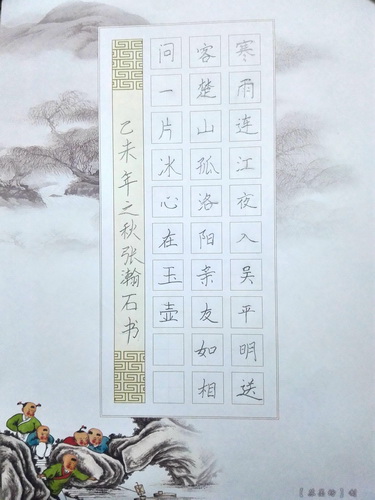 寒雨连江夜入吴平明送
客楚山孤洛阳亲友如相
问一片冰心在玉壶
乙未年之秋张瀚石书